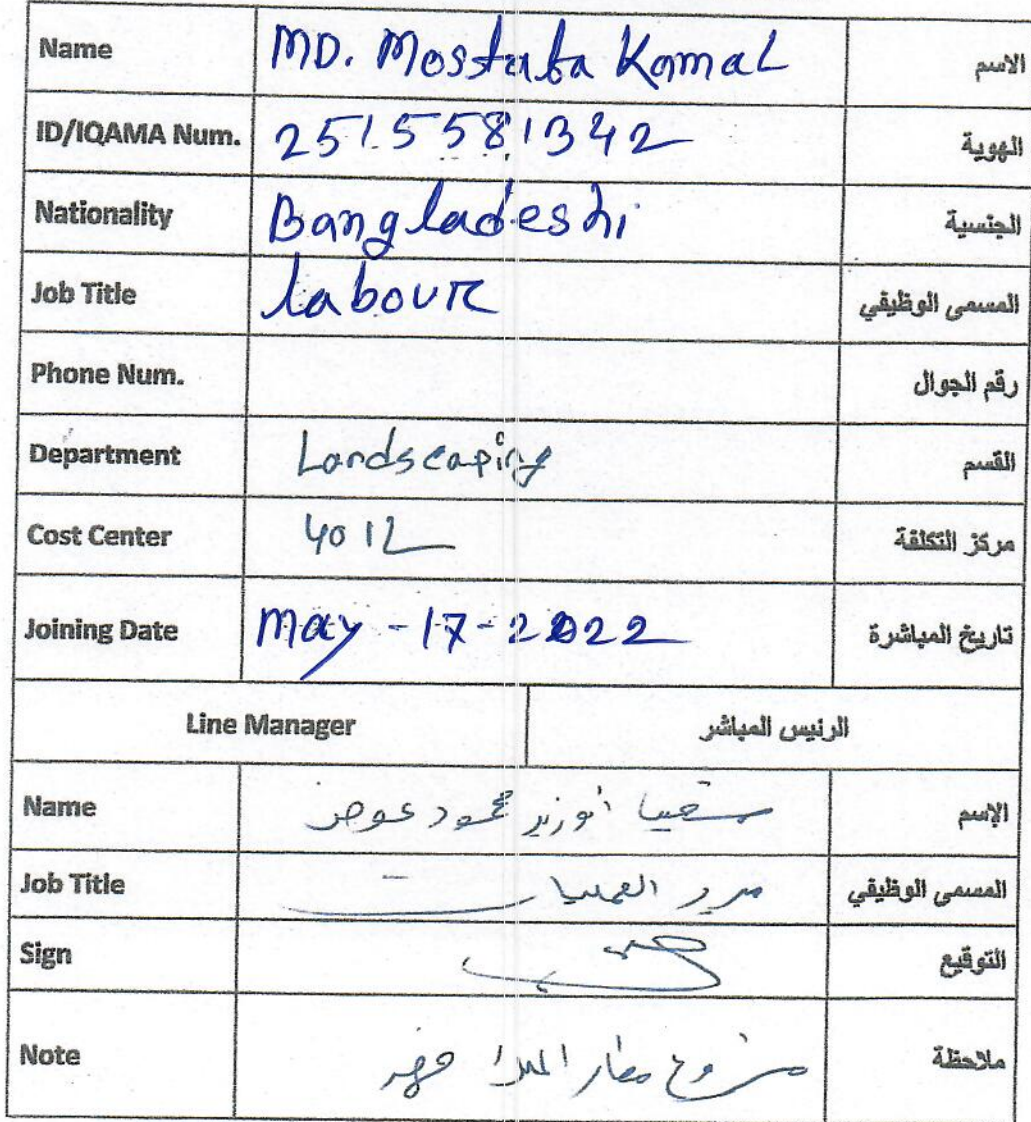 Name MD. Mostafa Kamal الاسم
ID/IQAMA Num. 2515581342 الهوية
Nationality Bangladeshi الجنسية
Job Title labour المسمى الوظيفي
Phone Num. رقم الجوال
Department Landscaping القسم
Cost Center 4012 مركز التكلفة
Joining Date May-17-2022 تاريخ المباشرة
Line Manager الرئيس المباشر
Name محمود عوض الإسم
Job Title مدير العمليات المسمى الوظيفي
Sign التوقيع
Note مشروع مطار الملك فهد ملاحظة